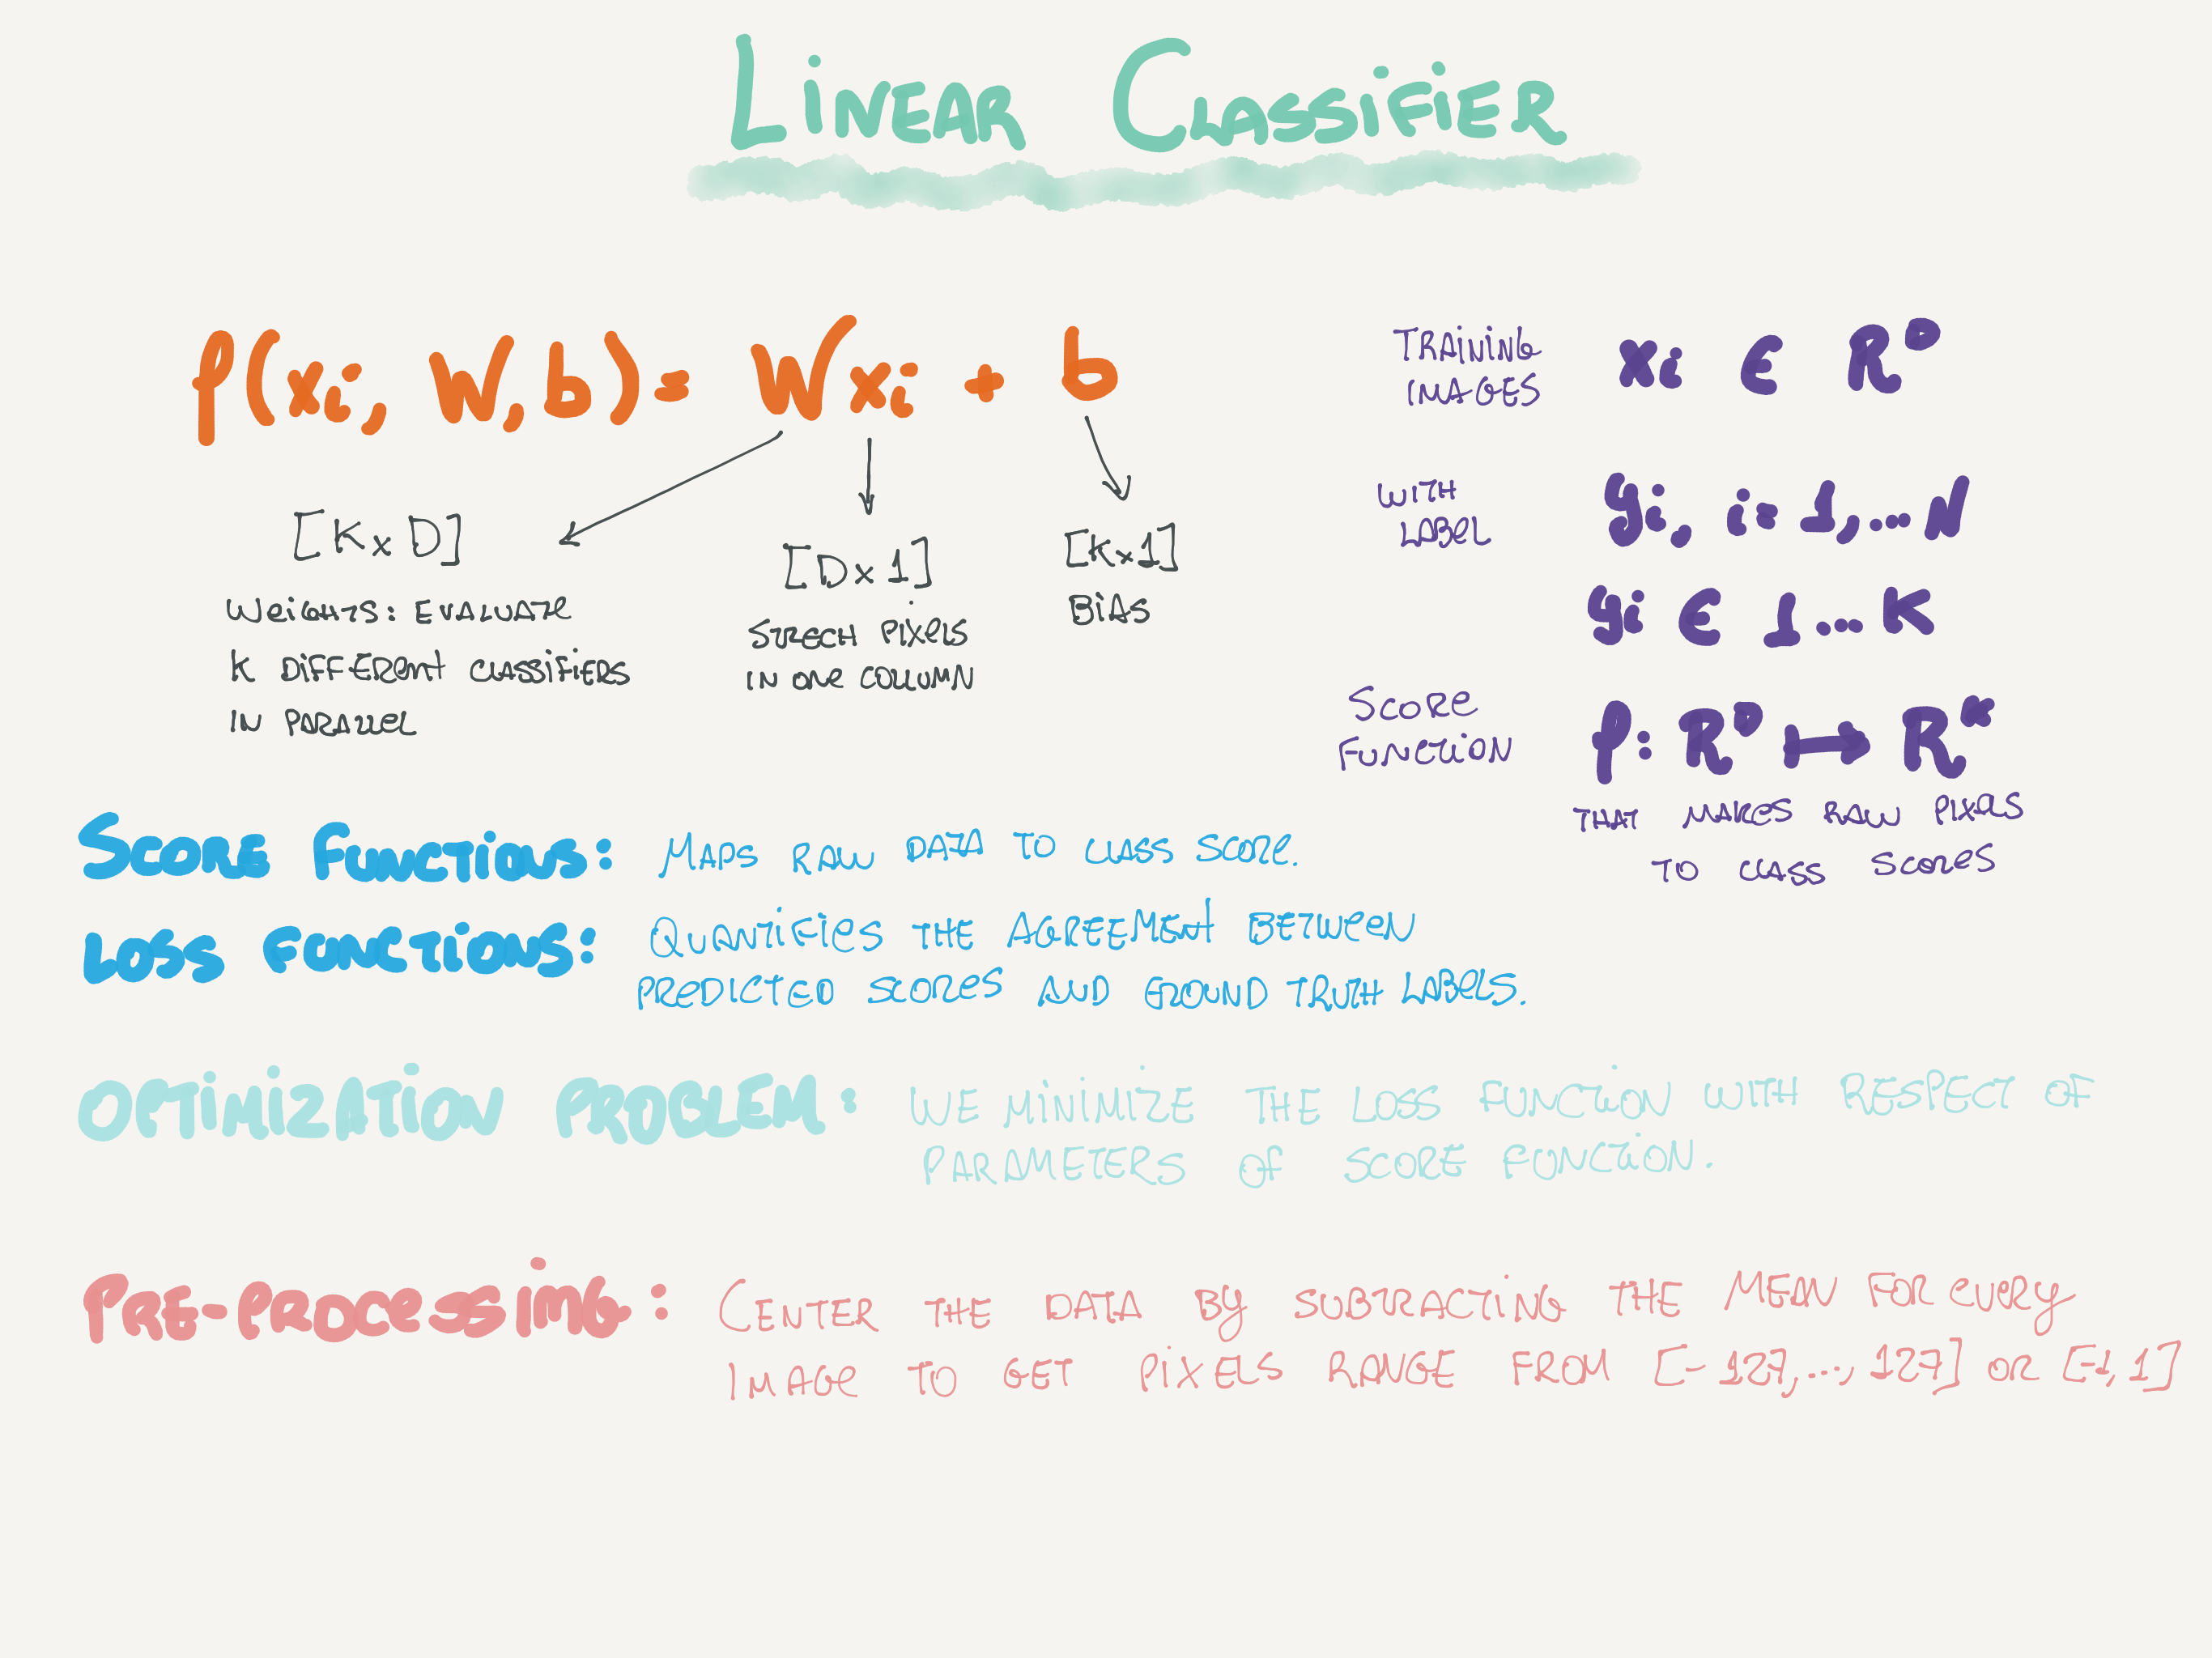 LINEAR CLASSIFIER
f(xi, W, b) = Wxi + b
[K x D]
WEIGHTS: EVALUATE
K DIFFERENT CLASSIFIERS
IN PARALLEL
[D x 1]
STRECH PIXELS
IN ONE COLUMN
[K x 1]
BIAS
TRAINING
IMAGES
xi ∈ R^D
WITH
LABEL
yi, i = 1,...N
yi ∈ 1...K
SCORE
FUNCTION
f: R^D ↦ R^K
THAT MAKES RAW PIXELS
TO CLASS SCORES
SCORE FUNCTIONS: MAPS RAW DATA TO CLASS SCORE.
LOSS FUNCTIONS: QUANTIFIES THE AGREEMENT BETWEEN
PREDICTED SCORES AND GROUND TRUTH LABELS.
OPTIMIZATION PROBLEM: WE MINIMIZE THE LOSS FUNCTION WITH RESPECT OF
PARAMETERS OF SCORE FUNCTION.
PRE-PROCESSING: CENTER THE DATA BY SUBTRACTING THE MEAN FOR EVERY
IMAGE TO GET PIXELS RANGE FROM [-127,...,127] OR [-1,1]